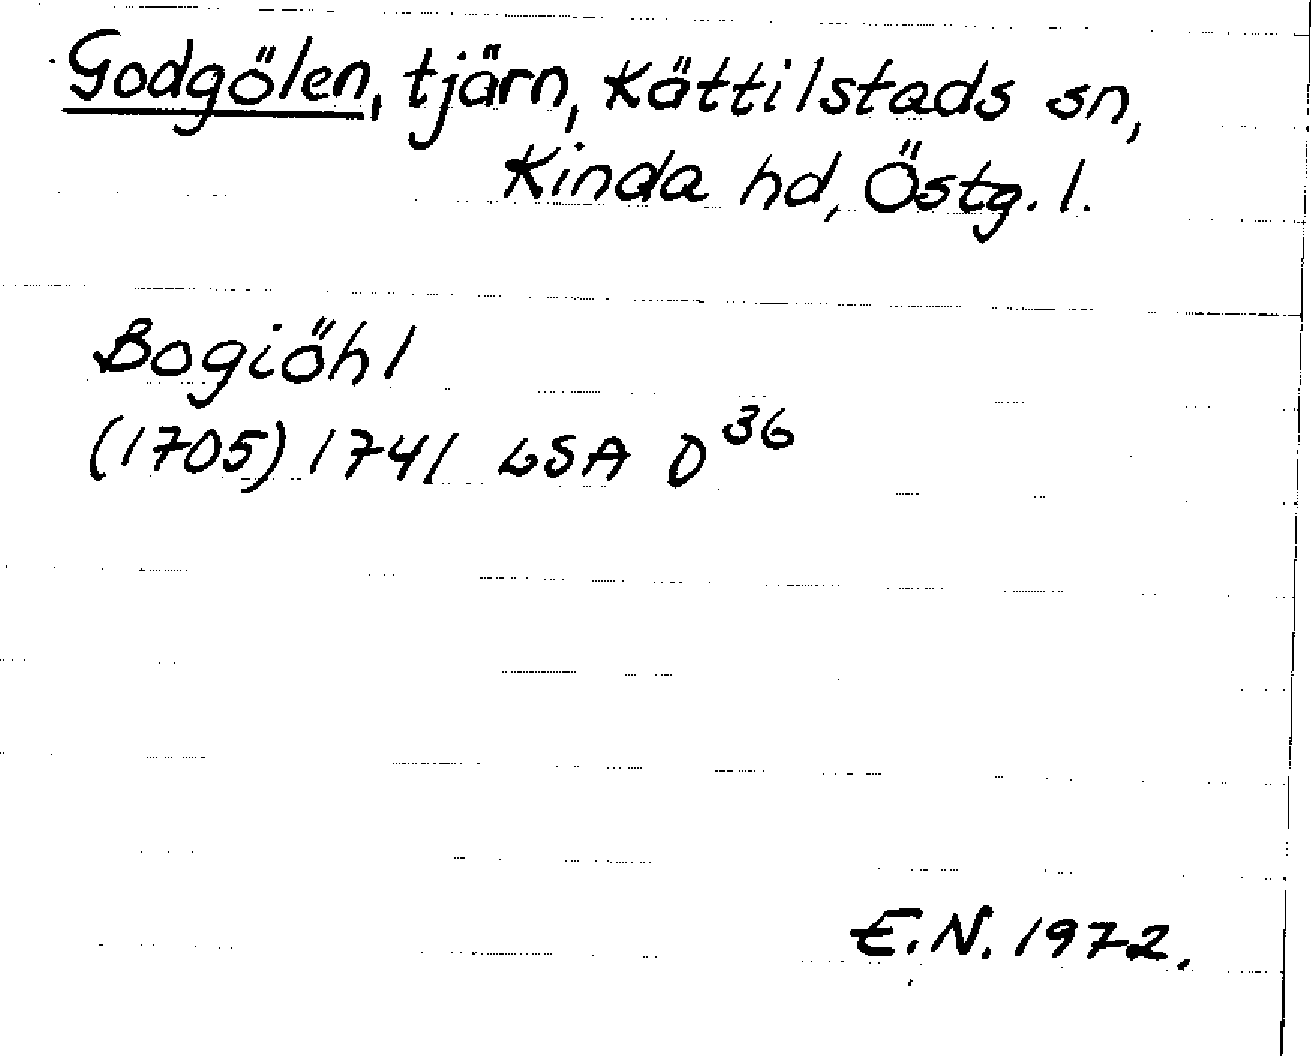 Godgölen, tjärn, Kättilstads sn,
Kinda hd, Östg. l.
Bogiöhl
(1705) 1741 LSA D 36
E.N. 1972.